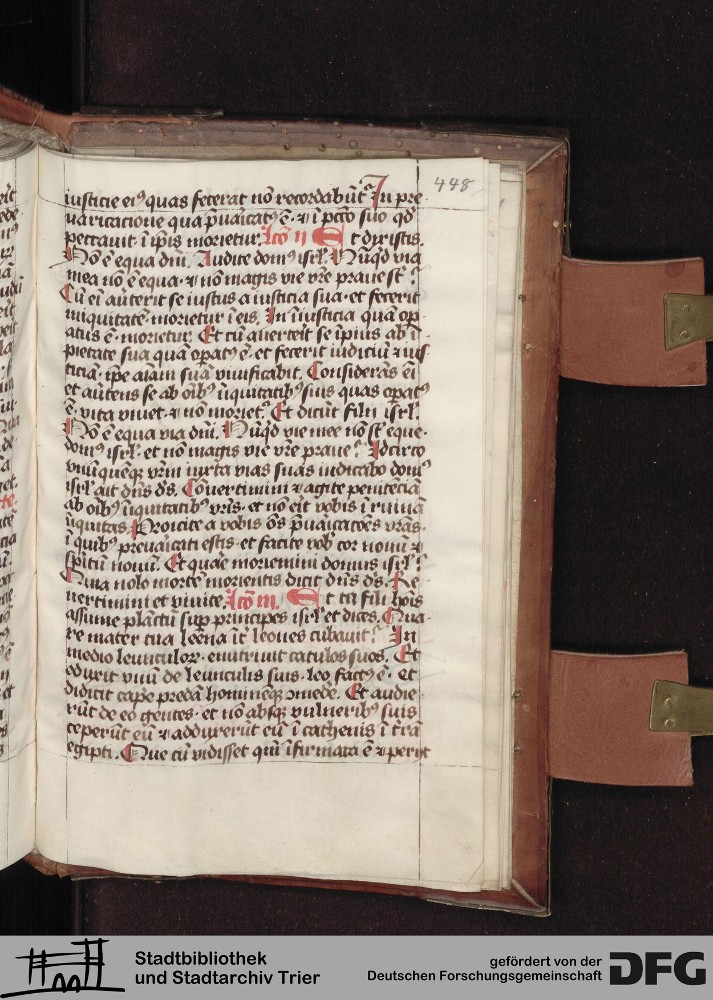 448
iusticie ei⁹ quas fecerat nō recordabūt᷑ In pre
uaricacione qua p̄uaīcat⁹ ē · ⁊ ī pctō suo qd̓
peccauit ī ip̄is morietur. lcō ij Et dixistis.
Nō ē equa dn̄i. Audite dom⁹ isrl̓. Nūqd̓ via
mea nō ē equa · ⁊ nō magis vie vr̄e praue st̄ ?
Cū ei̅ aūterit se iustus a iusticia sua · et fecerit
iniquitatē · morietur ī eis. In īiusticia quā op
atus ē · morietur. Et cū auerterit se īpius ab ī
pietate sua quā opat⁹ ē · et fecerit iudiciū ⁊ ius
ticiā · ip̄e aīam suā viuificabit. Considerās ei̅
et aūtens se ab oīb⁹ iīquitatib⁹ suis quas opat⁹
ē · vita viuet · ⁊ nō moriet᷑. Et dicūt filij isrl̓.
Nō ē equa via dn̄i. Nūqd̓ vie mee nō st̄ eque ·
dom⁹ isrl̓ · et nō magis vie vr̄e praue ? Idcirco
vnūquēqꝫ vr̄m iuxta vias suas iudicabo dom⁹
isrl̓ ait dn̄s ds̄. Cōuertimini ⁊ agite penitēciā
ab oīb⁹ iīquitatib⁹ vr̄is · et nō eīt vobis ī ruinā
iīquitas Proicite a vobis ōs p̄uaīcacōes vrās ·
ī quib⁹ preuaīcati estis · et facite vob̓ cor nouū ⁊
spītū nouū. Et quāe moriemini domus isrl̓ ?
Quia nolo mortē morientis dicit dn̄s ds̄. Re
uertimini et viuite. lcō iij. Et tu fili hoīs
assume plāctū sup principes isrl̓ et dices. Qua
re mater tua leēna iī̄t leones cubauit ? In
medio leunculoꝝ · enutriuit catulos suos. Et
eduxit vnū de leunculis suis · leo fact⁹ ē · et
didicit cape predā hominēqꝫ ɔmedē. Et audie
rūt de eo gentes · et nō absqꝫ vulnerib⁹ suis
ceperūt eū ⁊ adduxerūt eū ī cathenis ī trā
egipti. Que cū vidisset qm̄ īfirmata ē ⁊ perijt
Stadtbibliothek
und Stadtarchiv Trier
gefördert von der
Deutschen Forschungsgemeinschaft
DFG